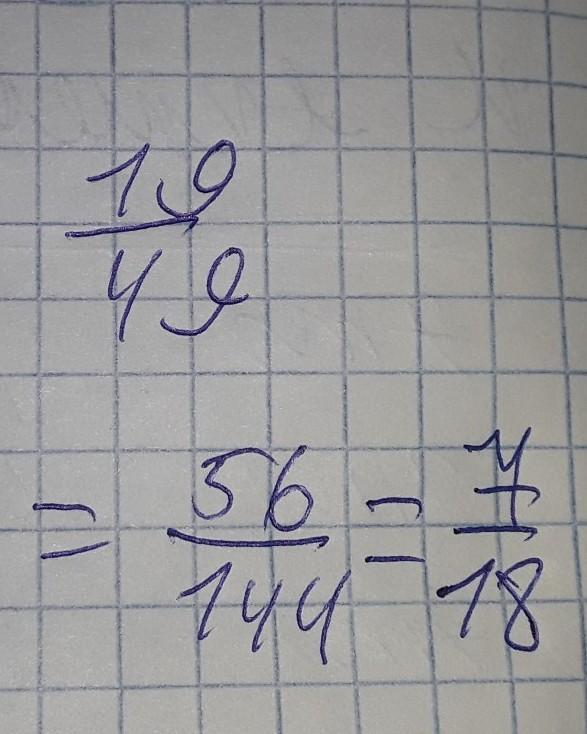 19
49
= 56/144 = 7/18